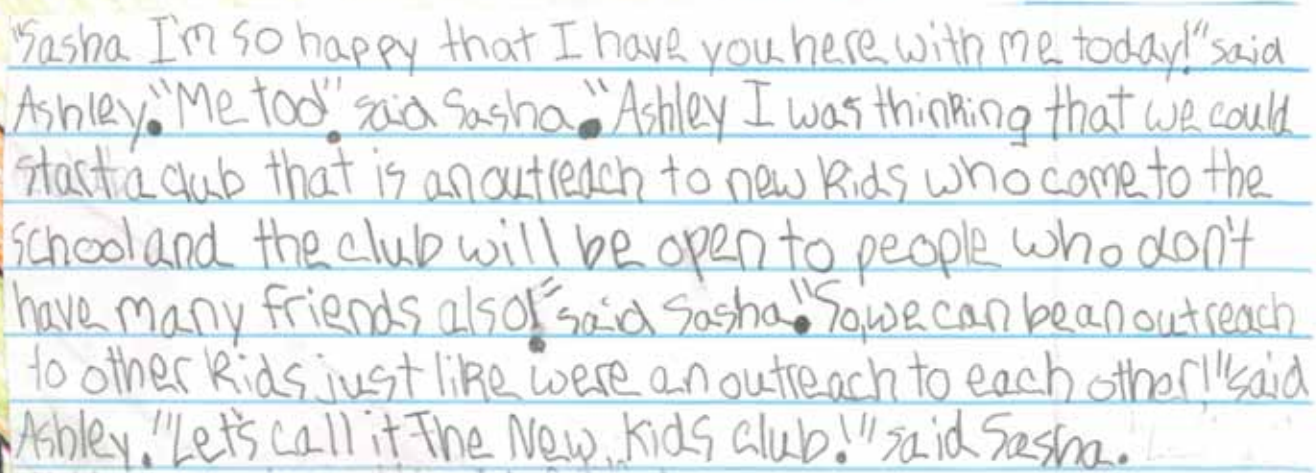 "Sasha I'm so happy that I have you here with me today!" said
Ashley. "Me too!" said Sasha. "Ashley I was thinking that we could
start a club that is an outreach to new kids who come to the
school and the club will be open to people who don't
have many friends also!" said Sasha. "So, we can be an outreach
to other kids just like were an outreach to each other!" said
Ashley. "Let's call it The New Kids Club!" said Sasha.